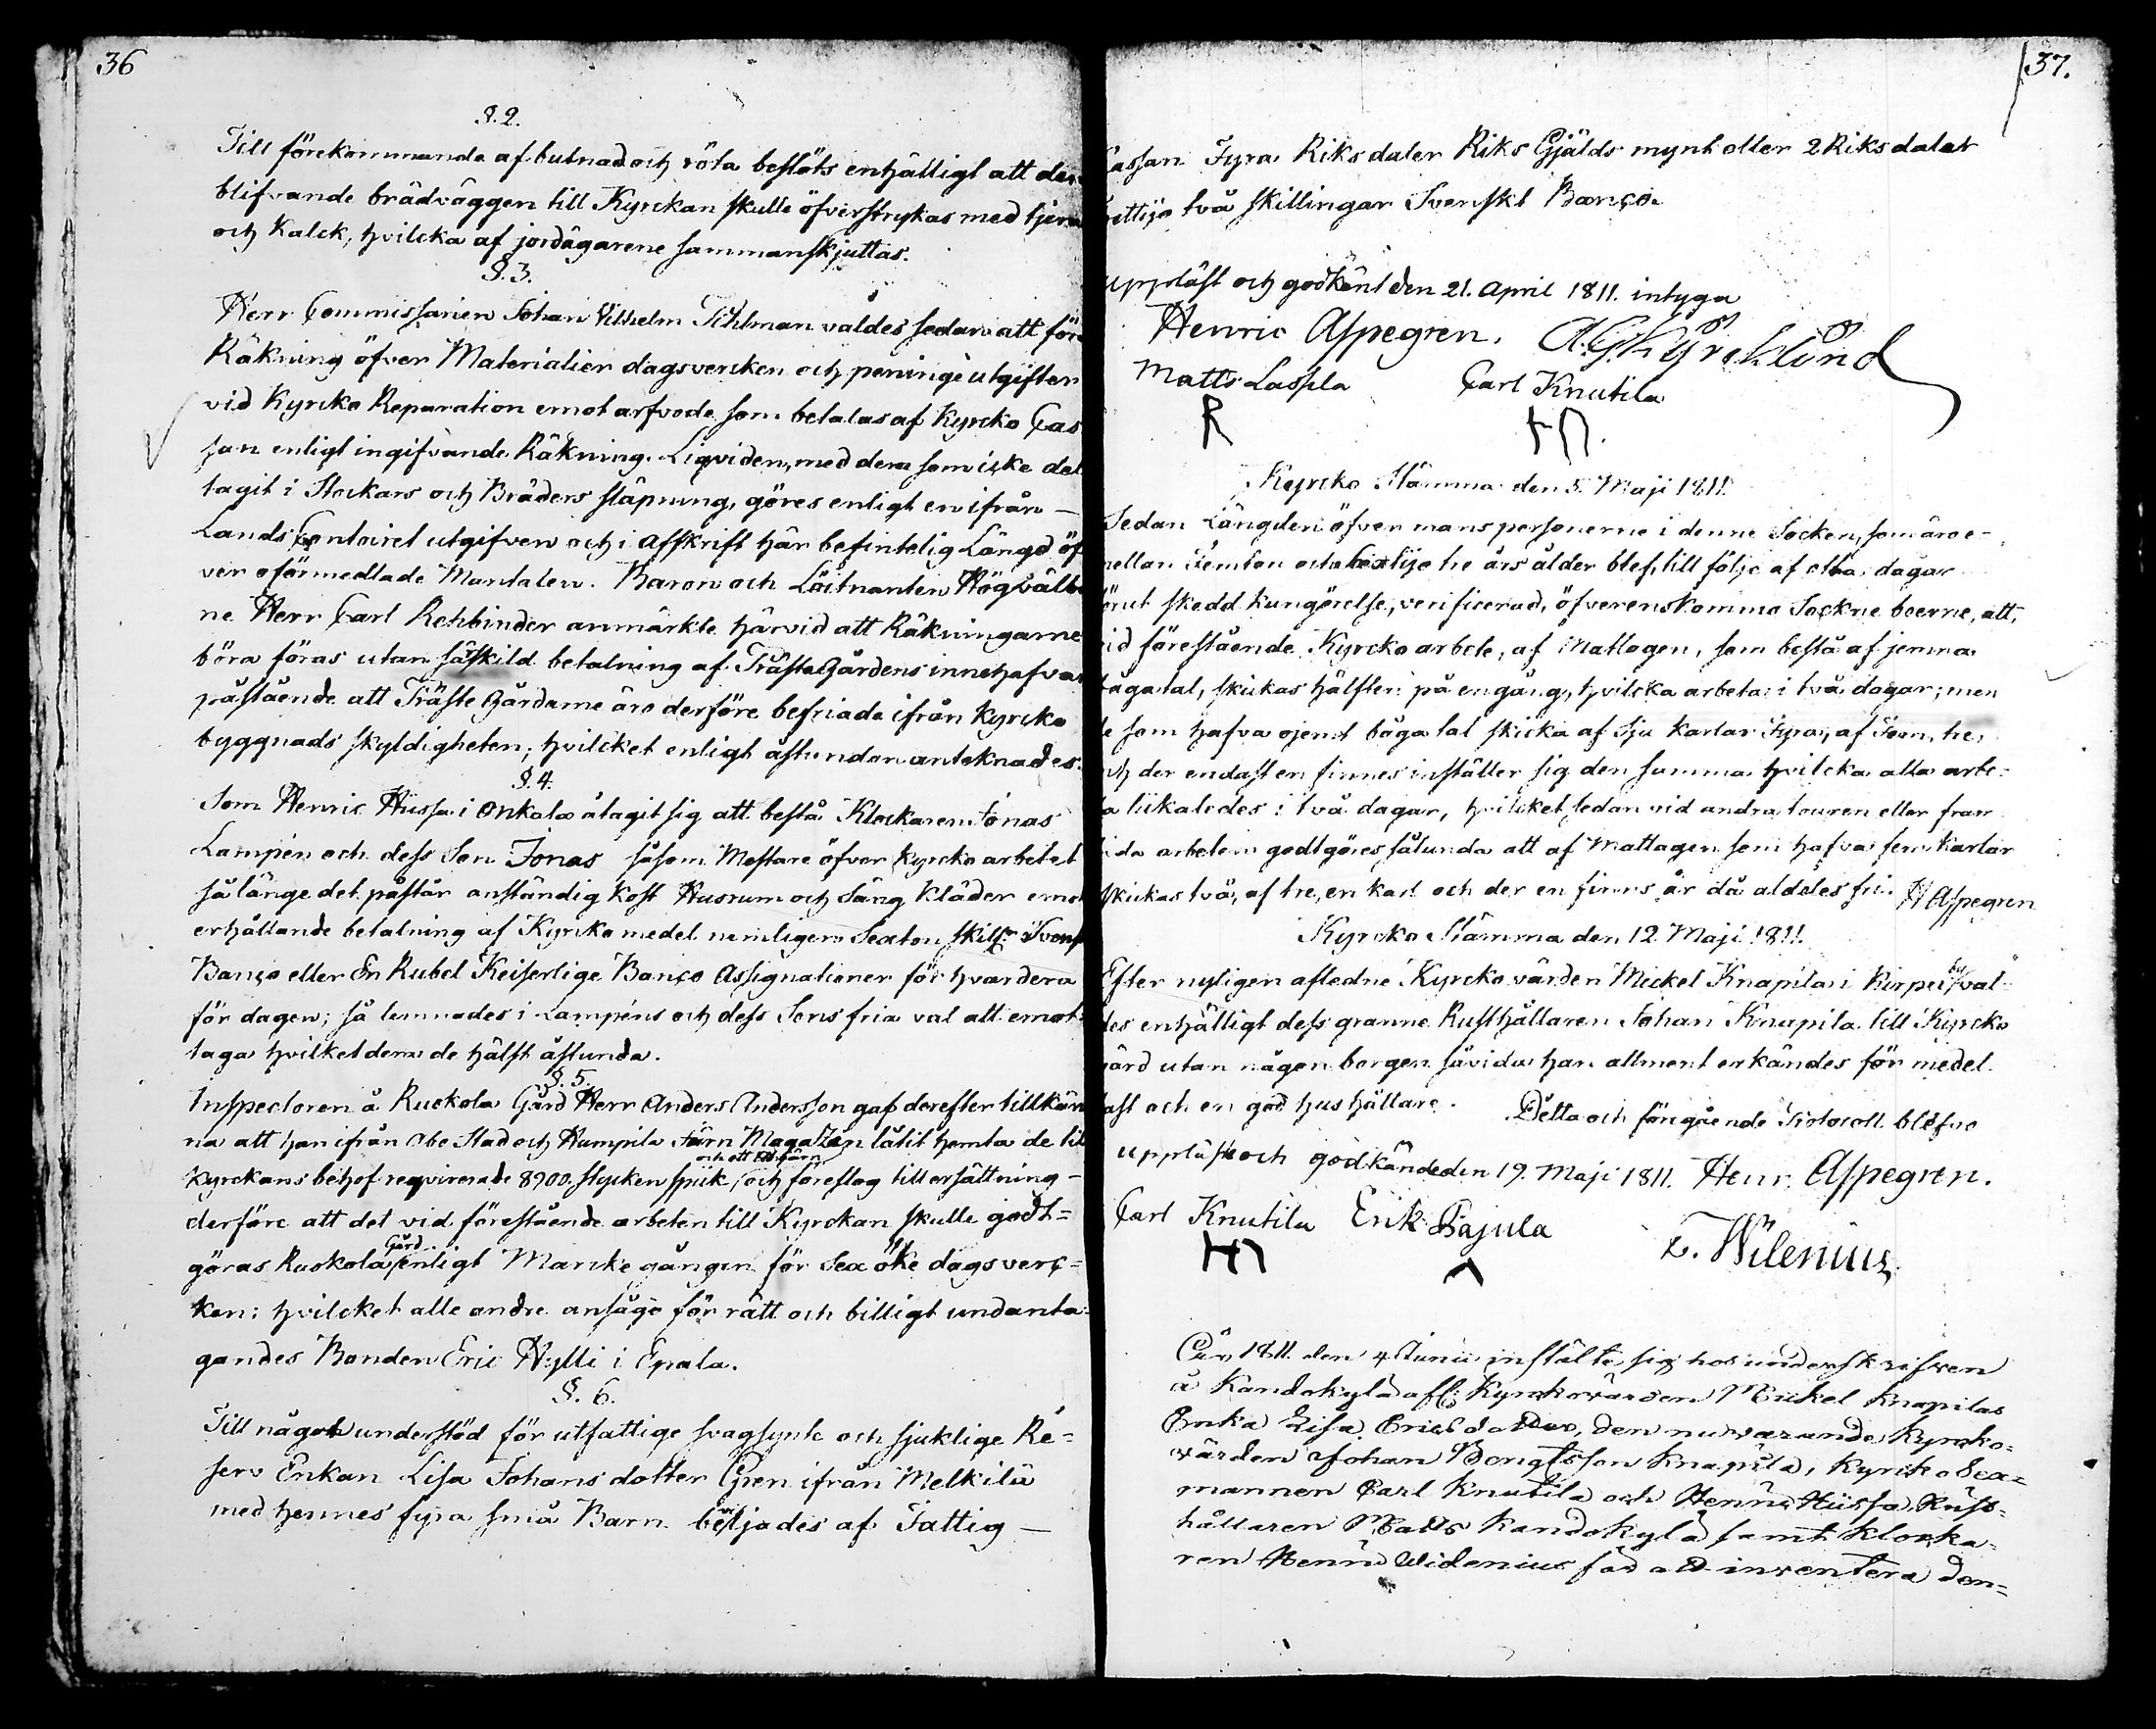 36
§. 2.
Till förekommande af bulnad och röta beslöts enhälligt att den
blifvande brädväggen till Kyrckan skulle öfverstrykas med tjera
och Kalck, hvilcka af jordägarene sammanskjuttas.
§. 3.
Herr Commissarien Johan Vilhelm Tihlman valdes sedan att föra
Räkning öfver Materialier dagsvercken och peninge utgifter
vid Kyrcko Reparation emot arfvode som betalas af Kyrcko Cas
san enligt ingifvande Räkning. Liqviden, med dem som icke del
tagit i Stockars och Bräders släpning, göres enligt en ifrån —
Lands Contoiret utgifven och i Afskrift här befintelig Längd öf
ver oförmedlade Mantalen. Baron och Löitnanten Högvälbo
ne Herr Carl Rehbinder anmärkte härvid att Räkningarne
böra föras utan särskild betalning af Träste Gårdens innehafvar
påstående att Träste Gårdarne äro derföre befriade ifrån Kyrcko
byggnads skyldigheten; hvilcket enligt åstundan anteknades.
§. 4.
Som Henric Hussa i Onkala åtagit sig att bestå Klockaren Jonas
Lampén och dess Son Jonas såsom Mestare öfver Kyrcko arbetet
så länge det påstår anständig kost Husrum och Säng Kläder emot
erhållande betalning af Kyrcko medel nemligen Sexton skill:r Svensk
Banço eller En Rubel Keiserlige Banço Assignationer för hvardera
för dagen; så lemnades i Lampéns och dess Sons fria val att emot
taga hvilket dera de hälst åstunda.
§. 5.
Inspectoren å Ruckola Gård Herr Anders Andersson gaf derefter tillkän
na att han ifrån Åbo Stad och Humpila Järn Magazin låtit hemta de till
Kyrckans behof reqvirerade 8900. stycken spik, och föreslog till ersättning —
derföre att det vid förestående arbeten till Kyrckan skulle godt=
göras Ruskola Gård enligt Marcke gången för Sex öke dagsverc=
ken: hvilcket alle andre ansågo för rätt och billigt undanta=
gandes Bonden Eric Hylli i Epala.
§. 6.
Till något understöd för utfattige svagsynte och sjuklige Re=
serv Enkan Lisa Johansdotter Gren ifrån Melkilä
med hennes fyra små Barn beviljades af Fattig —
37.
Cassan Fyra Riksdaler Riks Gjälds mynt eller 2 Riksdaler
två skillingar Svenskt Banço.
Uppläst och godkänt den 21. April 1811. intyga
Henric Aspegren. A. G. Kyrcklund
Matts Laspla Carl Knutila
R HΠ.
Kyrcko Stämma den 5. Maji 1811.
Sedan Längden öfver manspersonerne i denne Socken, som äro e-
mellan Femton och Sextijo tre års ålder blef, till följe af otta dagar
förut skedd kungörelse, verificerad, öfverenskommo Sockne boerne, att,
vid förestående Kyrcko arbete, af Matlagen, som bestå af jemna
bågatal, skickas hälften på en gång, hvilcka arbeta i två dagar; men
de som hafva ojemt båga tal skicka af Sju karlar Fyra, af Fem, tre,
och der endast en finnes inställer sig den samma hvilcka alla arbe-
ta likaledes i två dagar, hvilcket sedan vid andra touren eller fram
tida arbeten godtgöres sålunda att af Matlagen som hafva fem karlar
skickas två, af tre, en karl och der en finns är då aldeles fri. H Aspegren
Kyrcko Stämma den 12. Maji 1811.
Efter nyligen afledne Kyrcko värden Mickel Knapila i Kirpei by val-
des enhälligt dess granne Rusthållaren Johan Knapila till Kyrcko
värd utan någon borgen såvida han allment erkändes för medel-
fast och en god hus hållare. Detta och föregående Protocoll blefvo
uppläste och godkände den 19. Maji 1811. Henr. Aspegren.
Carl Knutila Erik Pajula
HΠ Z. Wilenius
År 1811 den 4 Junii instälte sig hos underskrifven
å Kandokylä afl: Kyrkovärden Mickel Knapilas
Enka Lisa Ericsdotter, den nuvarande Kyrcko=
värden Johan Bengtsson Knapila, Kyrcko Sex=
mannen Carl Knutila och Henric Hüssa, Rust-
hållaren Matts Kandokylä samt Klocka-
ren Henric Widenius för att inventera den=